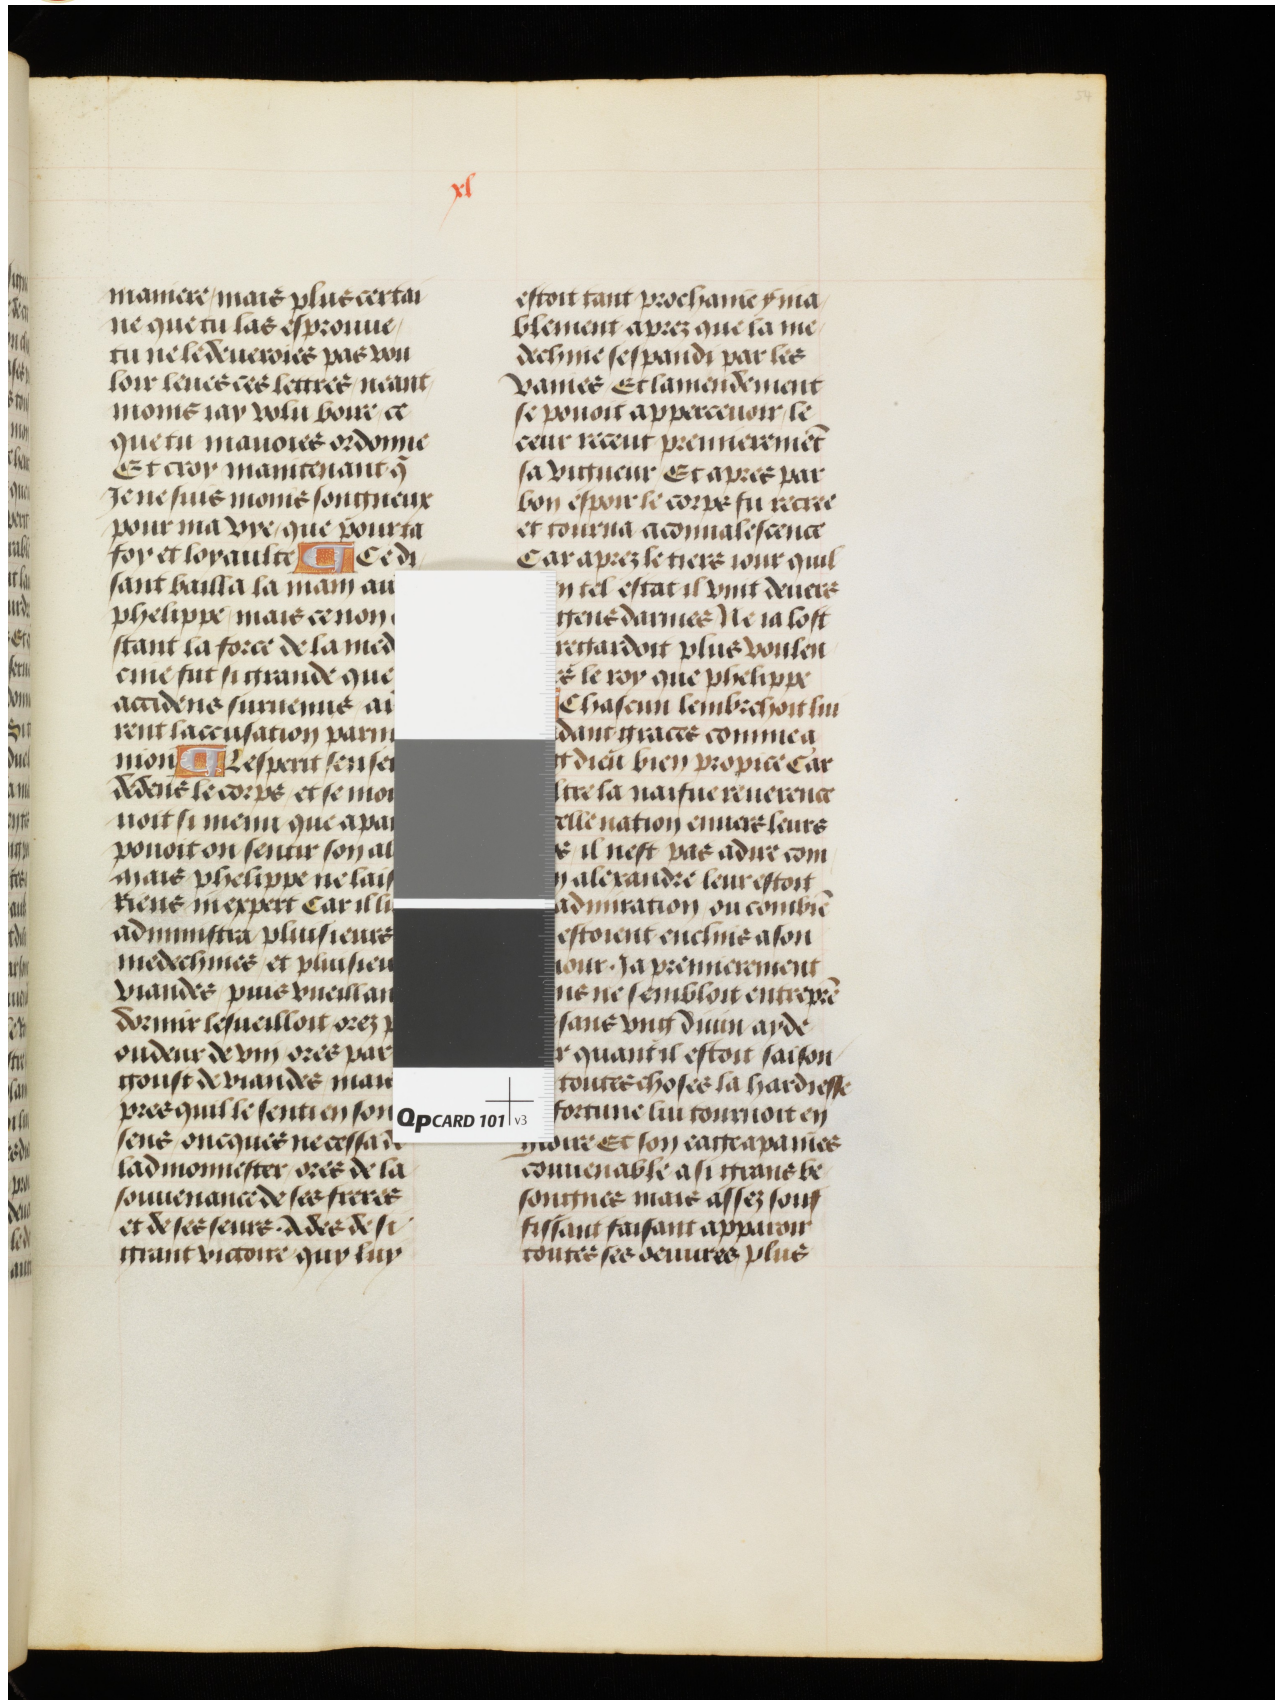 54
xl
maniere / mais plus certai
ne que tu las esprouue /
tu ne le deueroies pas vou
loir leues ces lettres / neant
moins iay volu boire ce
que tu mauoies ordonne
Et croy maintenant q̄
Je ne suis moins songneux
pour ma vye / que pour ta
foy et loyaulte Ce di
sant bailla la main au
phelippe / mais ce non
stant la force de la med
cine fut si grande que
accidens suruenus
rent laccusation parm
nion Lesperit sen
dedens le corps et se mo
uoit si menu que a pai
pouoit on sentir son al
Mais phelippe ne lais
Riens inexpert Car il lu
administra pluisieurs
medechines et pluisieu
viandes puis vueillan
dormir lesueilloit orez p
oudeur de vin ores par
goust de viandes mais
pres quil le senti en son
sens oncques ne cessa de
ladmonnester ores de la
souuenance de ses freres
et de ses seurs . Ades de si
grant victoire quy luy
estoit tant prochaine
blement aprez que la me /
dechine sespandi par les
vaines Et lamendement
se pouoit apperceuoir / le
ceur recent premierement̄
sa vigueur Et apres par
bon espoir le corps fu recree
et tourna a conualescence
Car aprez le tiers iour quil
n tel estat il vint deuers
gens darmes Ne ia lost
regardoit plus voulen
es le roy que phelippe
Chascun lembrechoit lui
dant graces comme a
dieu bien propice Car
ltre la naifue reuerence
celle nation enuers leurs
s il nest pas a dire com
alexandre leur estoit
admiration ou combiē
estoient enclins a son
. Ja premierement
ne sembloit entreprē
sans vng diuin ayde
r quant il estoit saison
toutes choses la hardiesse
fortune lui tournoit en
gloire Et son eage a paines
conuenable a si grans be
songnes mais assez souf
fissant faisant apparoir
toutes ses oeuures plus
QPCARD 101 v3